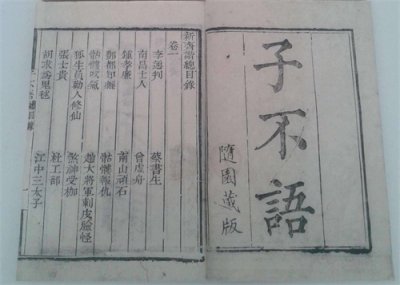 子不語
隨園藏版
新齊諧總目錄
卷一
李通判 蔡書生
南昌士人 曾虛舟
鍾孝廉 南山頑石
酆都知縣 骷髏報仇
骷髏吹氣 趙大將軍刺皮臉怪
狐生員勸人修仙 煞神受枷
張士貴 杜工部
胡求為鬼毬 江中三太子